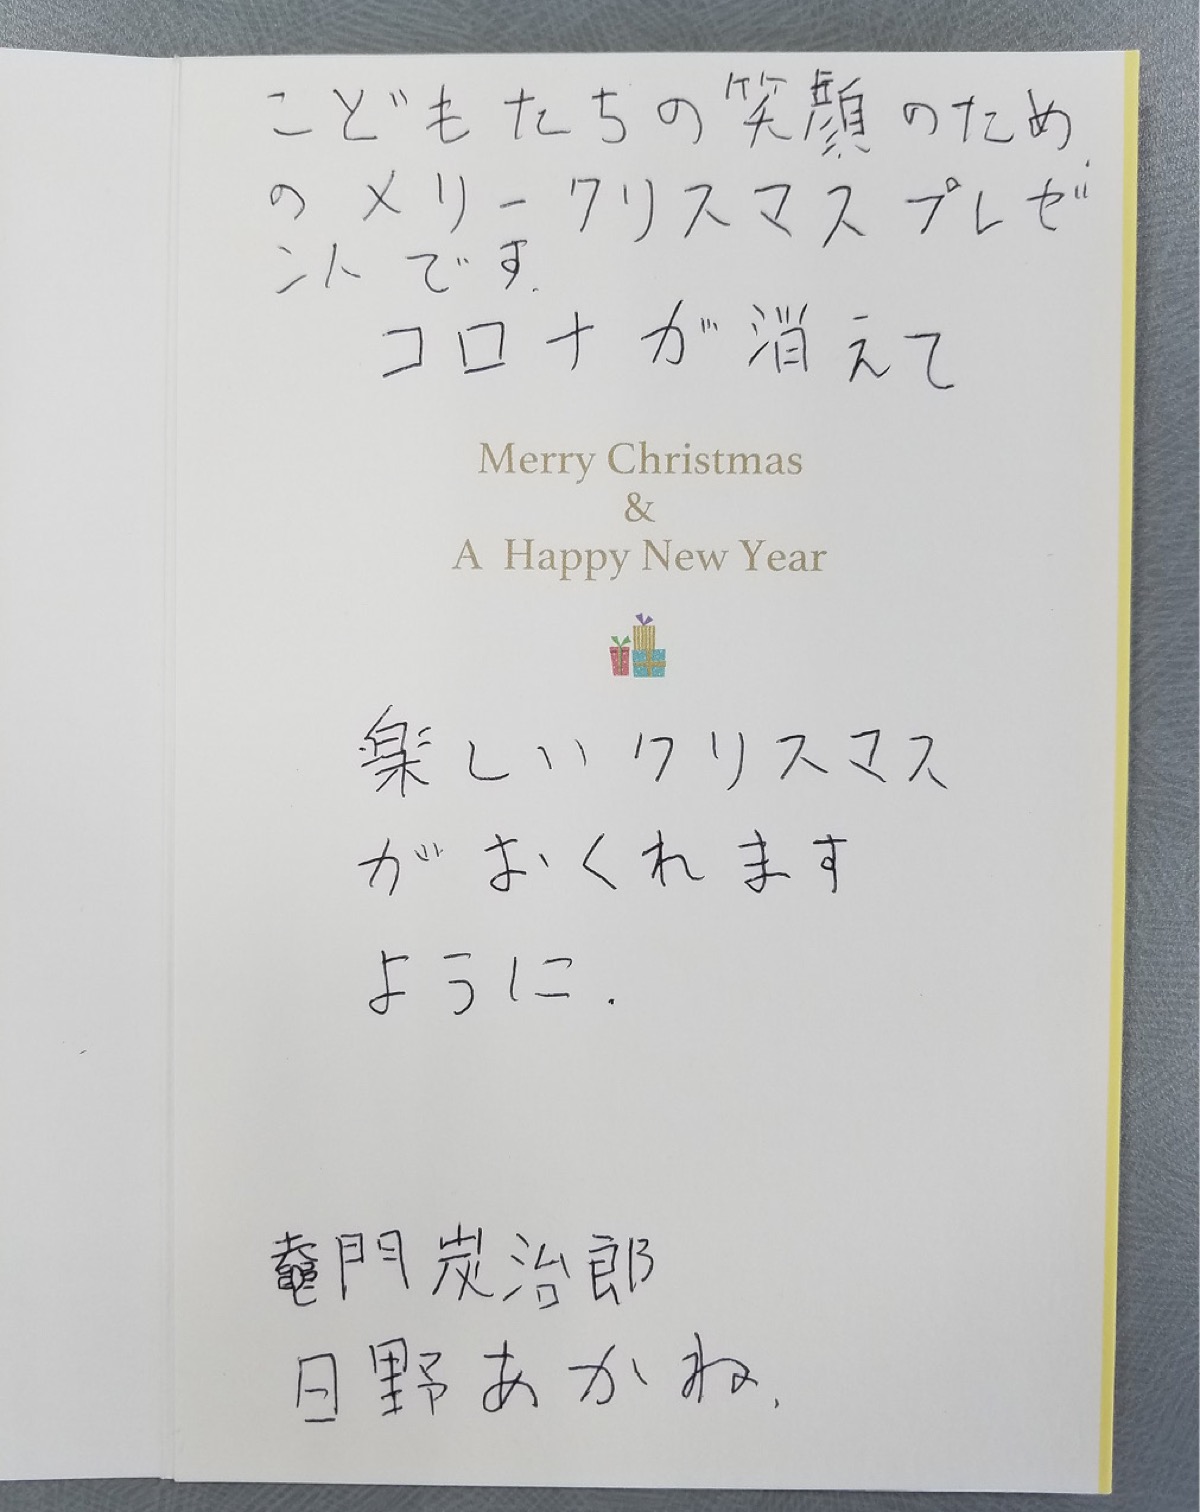 こどもたちの笑顔のため
のメリークリスマスプレゼ
ントです.
コロナが消えて
Merry Christmas
&
A Happy New Year
楽しいクリスマス
がおくれます
ように.
竈門炭治郎
日野あかね.